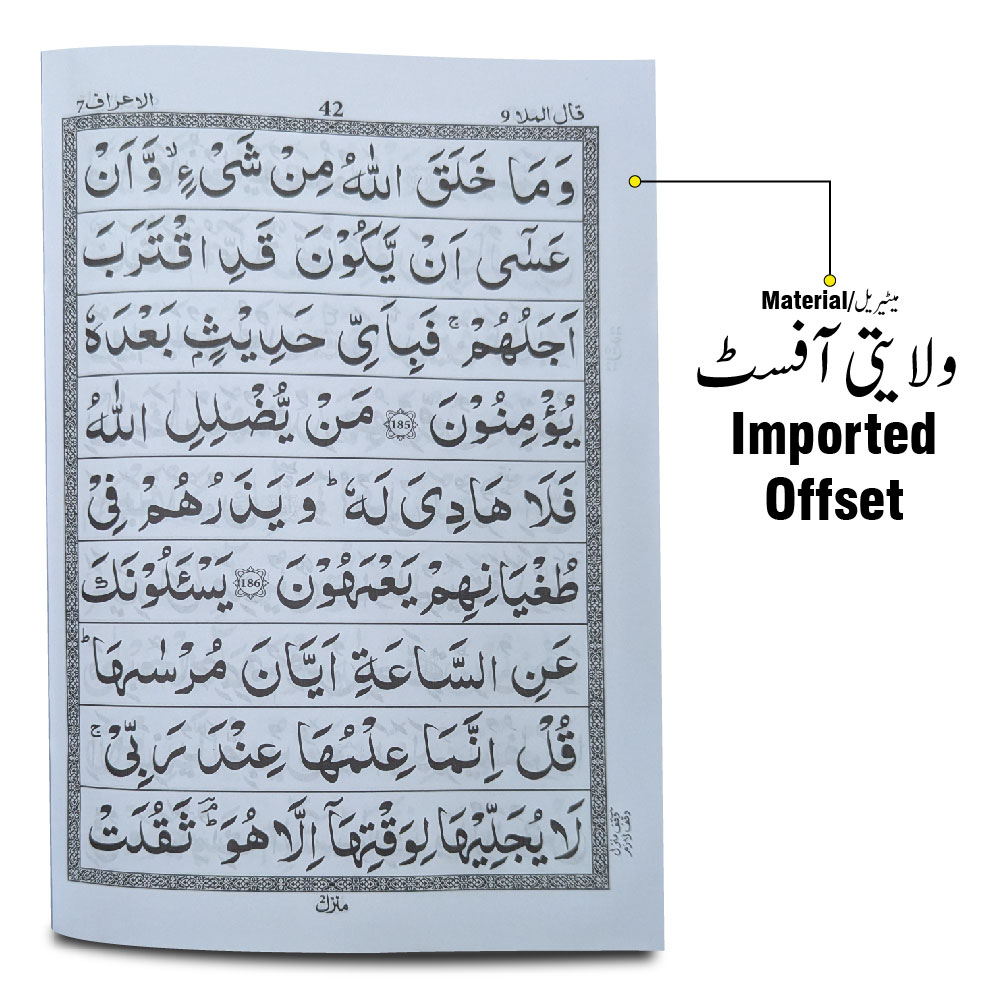 الاعراف7 42 قال الملا 9
وَمَا خَلَقَ اللّٰهُ مِنْ شَیْءٍ ۙ وَّ اَنْ
عَسٰۤی اَنْ یَّكُوْنَ قَدِ اقْتَرَبَ
اَجَلُهُمْ ۚ فَبِاَیِّ حَدِیْثٍۭ بَعْدَهٗ
یُؤْمِنُوْنَ 185 مَنْ یُّضْلِلِ اللّٰهُ
فَلَا هَادِیَ لَهٗ ؕ وَ یَذَرُهُمْ فِیْ
طُغْیَانِهِمْ یَعْمَهُوْنَ 186 یَسْـَٔلُوْنَكَ
عَنِ السَّاعَةِ اَیَّانَ مُرْسٰىهَا ؕ
قُلْ اِنَّمَا عِلْمُهَا عِنْدَ رَبِّیْ ۚ
لَا یُجَلِّیْهَا لِوَقْتِهَاۤ اِلَّا هُوَ ؔۘؕ ثَقُلَتْ
منزل 2
Material/میٹیریل
ولایتی آفسٹ
Imported
Offset